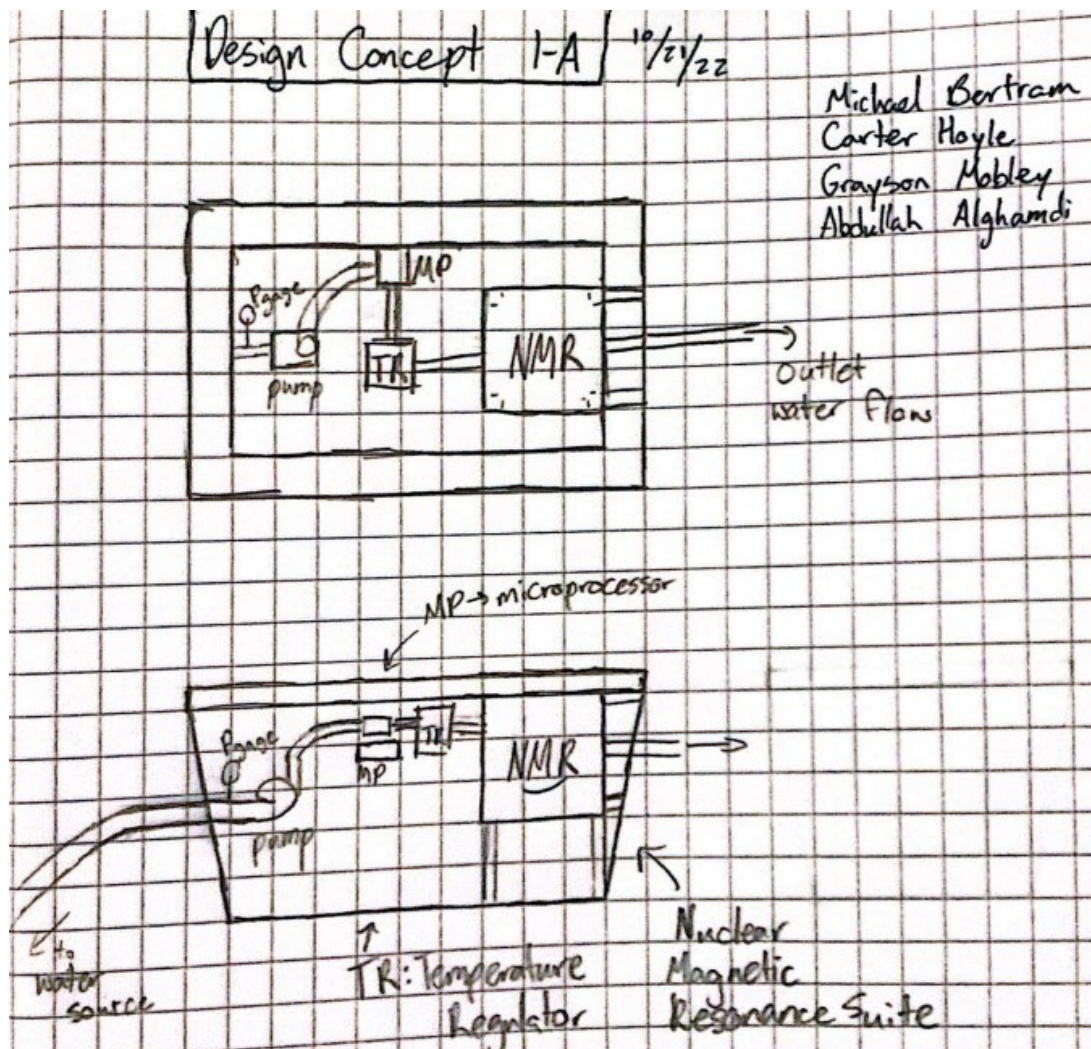 Design Concept 1-A 10/21/22
Michael Bertram
Carter Hoyle
Grayson Mobley
Abdullah Alghamdi
Pgage
MP
pump
TR
NMR
outlet
water flow
MP → microprocessor
Pgage
MP
TR
NMR
pump
to
water
source
TR: Temperature
Regulator
Nuclear
Magnetic
Resonance Suite